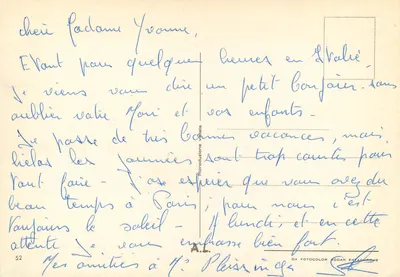 chère Madame Yvonne,
Etant pour quelques heures en Italie
je viens vous dire un petit bonjour sans
oublier votre Mari et vos enfants.
Je passe de très bonnes vacances, mais
hélas les journées sont trop courtes pour
tout faire - J'ose espérer que vous avez du
beau temps à Paris, pour nous c'est
toujours le soleil - A lundi, et en cette
attente je vous embrasse bien fort
Mes amitiés à Mr
52
A.L.
FOTOCOLOR KODAK EKTACHROME